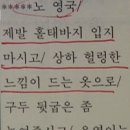 *****노 영국/
제발 홀태바지 입지
마시고/ 상하 헐렁한
느낌이 드는 옷으로/
구두 뒷굽은 좀